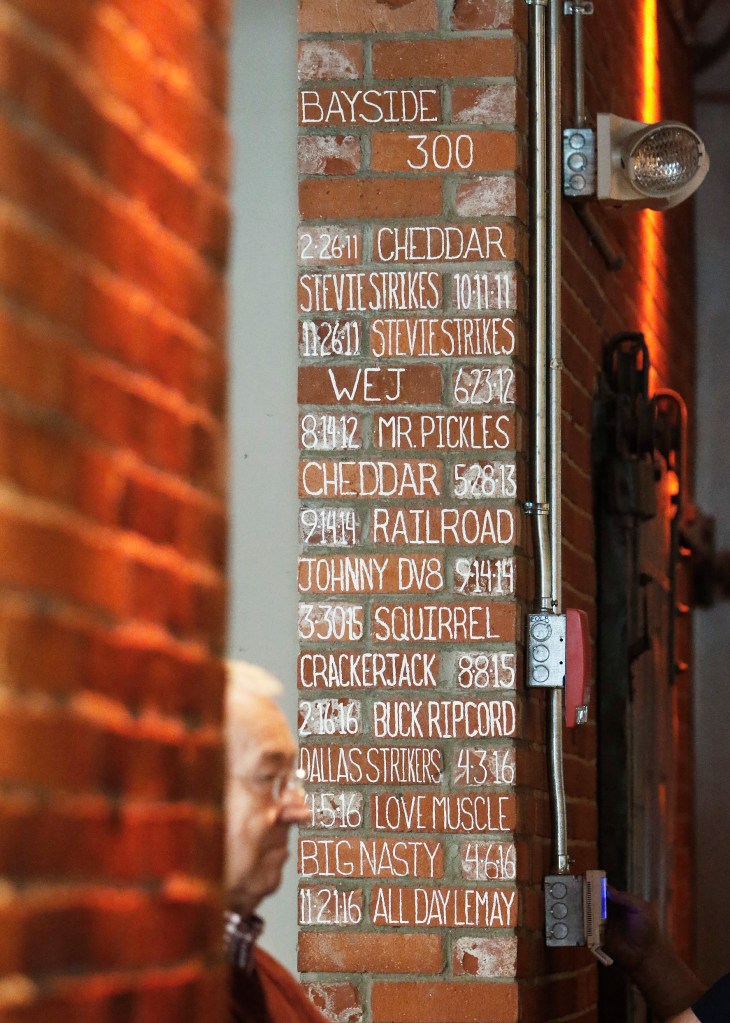 BAYSIDE
300
2·26·11 CHEDDAR
STEVIE STRIKES 10·11·11
11·26·11 STEVIE STRIKES
WEJ 6·23·12
8·14·12 MR. PICKLES
CHEDDAR 5·28·13
9·14·14 RAILROAD
JOHNNY DV8 9·14·14
3·30·15 SQUIRREL
CRACKERJACK 8·8·15
2·16·16 BUCK RIPCORD
DALLAS STRIKERS 4·3·16
4·5·16 LOVE MUSCLE
BIG NASTY 4·6·16
11·21·16 ALL DAY LEMAY